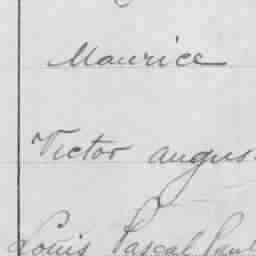 Maurice
Victor augus
Louis Pascal Paul